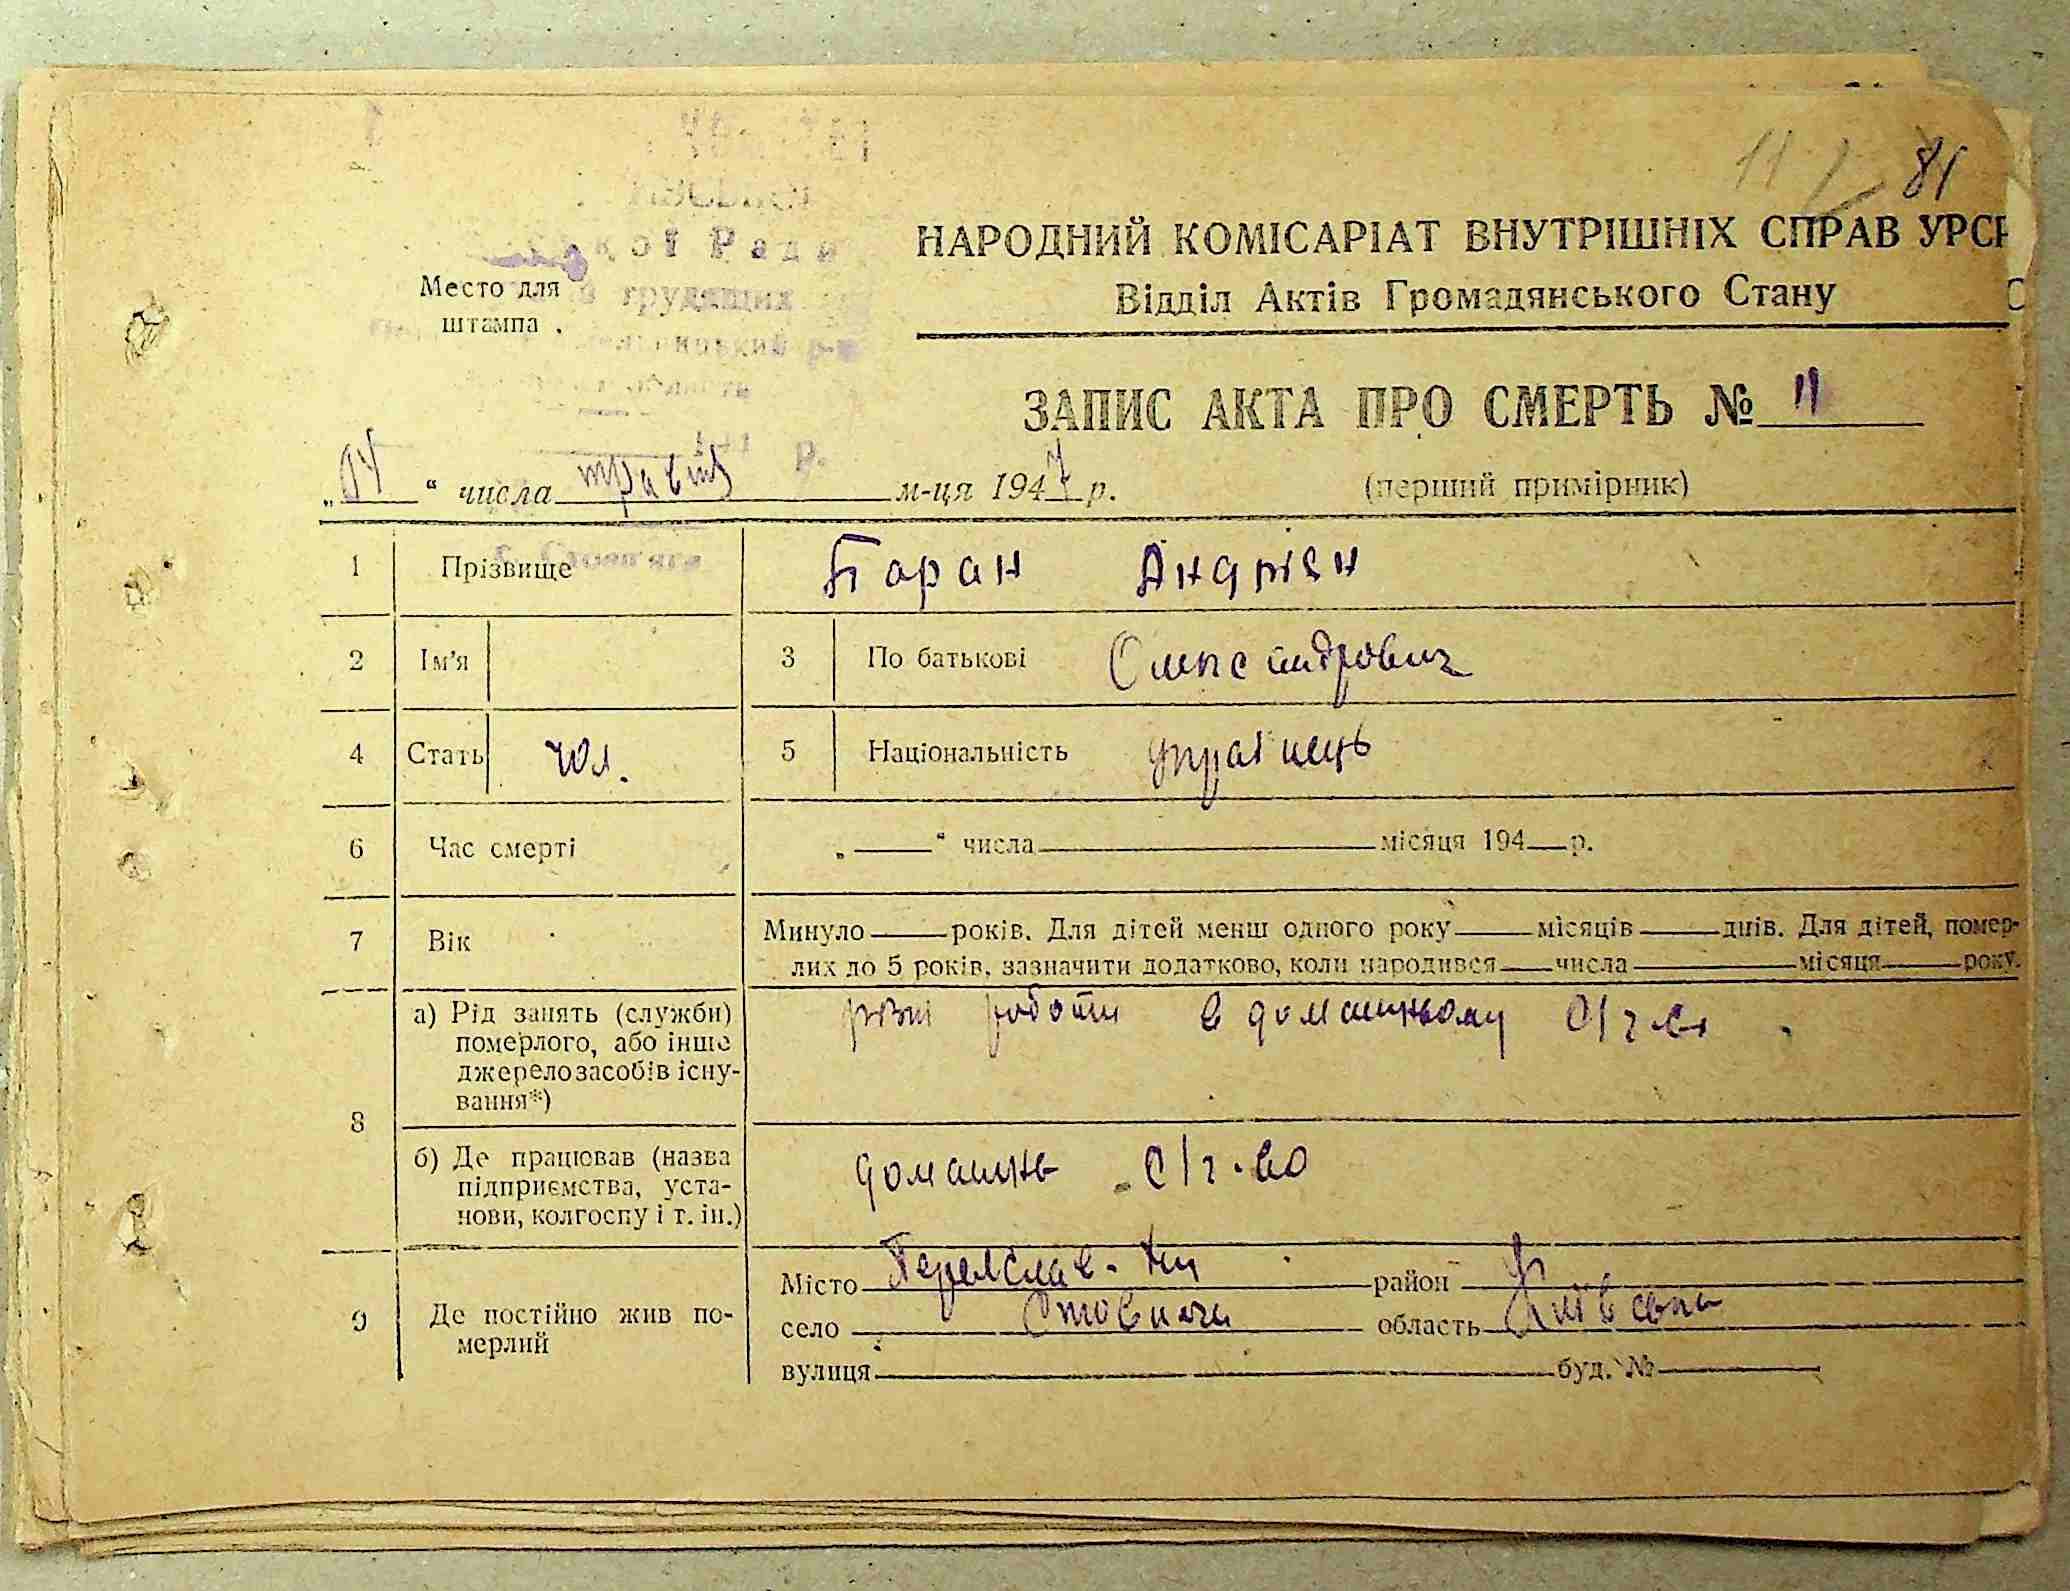 11 81
НАРОДНИЙ КОМІСАРІАТ ВНУТРІШНІХ СПРАВ УРСР
Відділ Актів Громадянського Стану
кої Ради
трудящих
Место для
штампа
ЗАПИС АКТА ПРО СМЕРТЬ № 11
„ “ числа травня м-ця 1947 р. (перший примірник)
1 Прізвище Баран Андріян
2 Ім'я 3 По батькові Олександрович
4 Стать чол. 5 Національність українець
6 Час смерті „ “ числа місяця 194 р.
7 Вік Минуло років. Для дітей менш одного року місяців днів. Для дітей, помер-
лих до 5 років, зазначити додатково, коли народився числа місяця року.
8 а) Рід занять (служби) померлого, або інше джерело засобів існування*) різні роботи в домашньому с/г-ві
б) Де працював (назва підприємства, установи, колгоспу і т. ін.) домашнь с/г-во
9 Де постійно жив померлий
Місто Переяслав-Хм район
село Стовпяги область Київська
вулиця буд. №